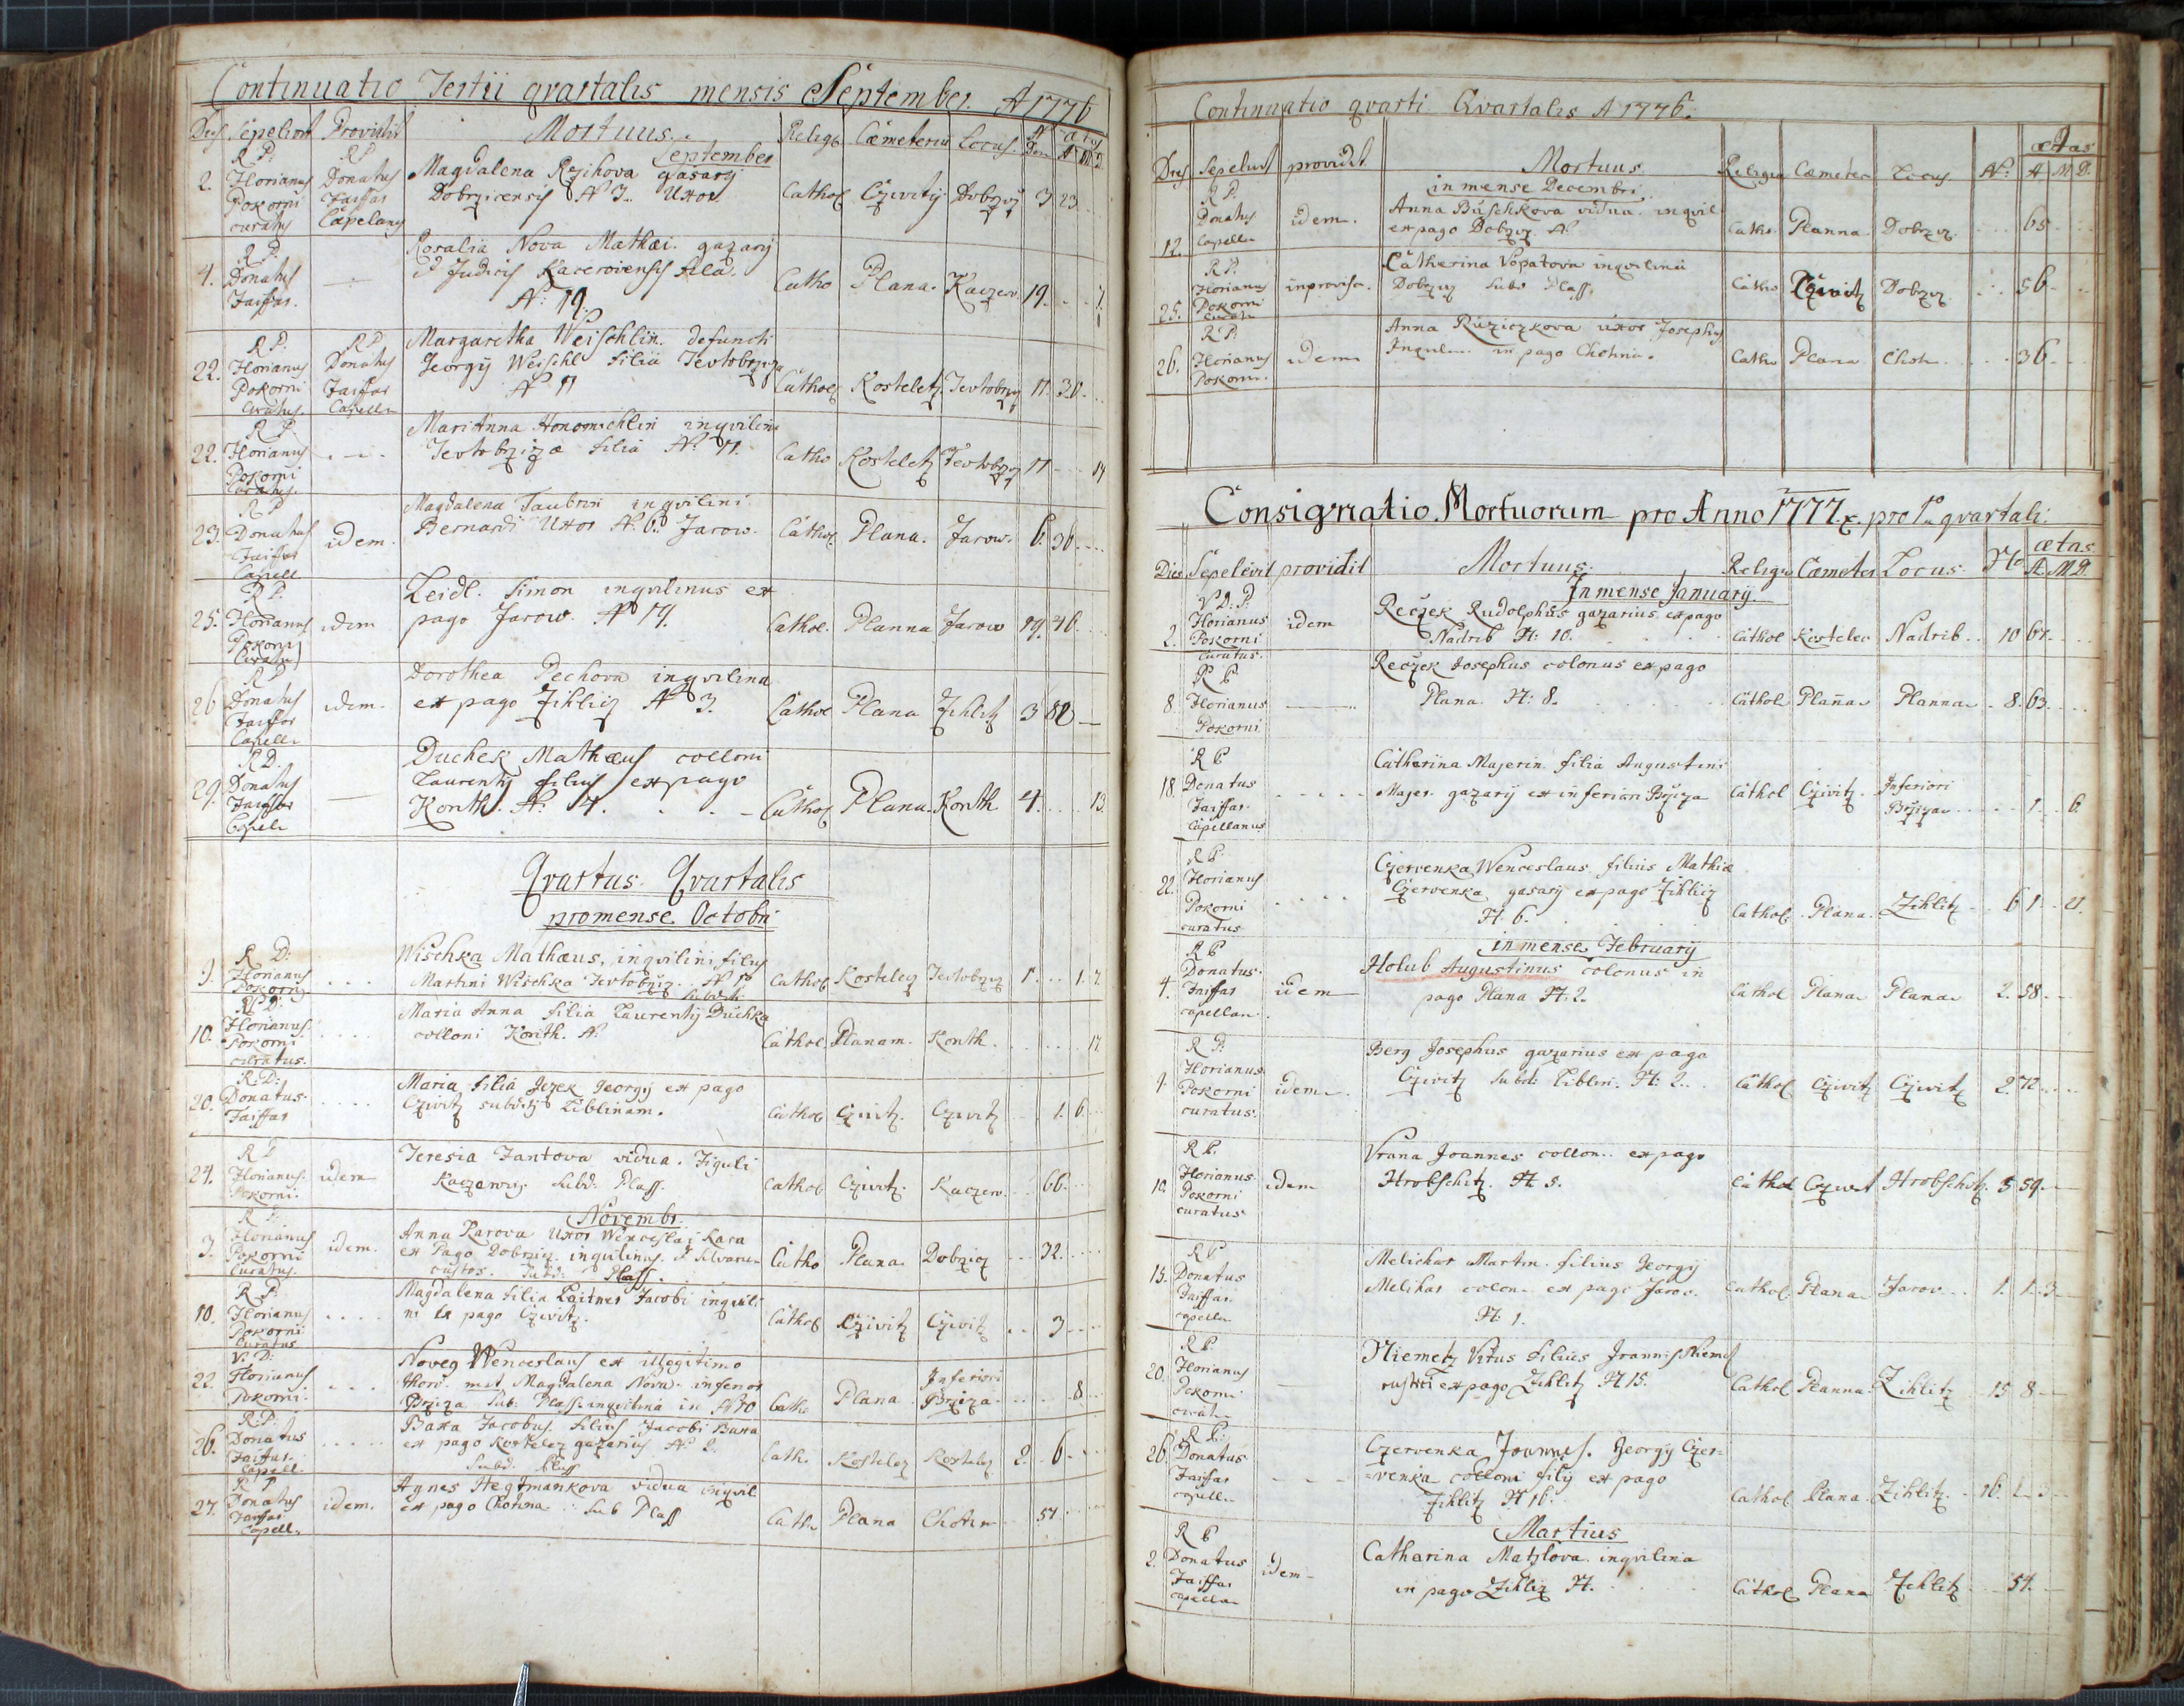 Continuatio Tertii qvartalis mensis September A 1776
Dies Sepelivit Providit Mortuus. Religio Cæmeterium Locus. N Dom Ætas A M D
September
2. R P: Florianus Pokorni curatus R P Donatus Faiffar Capelanus Magdalena Rzihova gasarij
Dobrzicensis N 3. Uxor Cathol Czivitz Dobrzicz 3 23
4. R P. Donatus Faiffar. Rosalia Nova Mathæi gazarij
Judicis Kacerovensis filia.
N: 19. Catho Plana. Kaczer. 19.
22. R P: Florianus Pokorni Curatus. R P Donatus Faiffar Capell. Margaretha Weischlin. defuncti
Georgij Weischl filia Tevtobrziza
N 11 Cathol Kosteletz. Tevtobrz 11. 30.
22. R P. Florianus Pokorni Curatus. Mari Anna inqvilini
Tevtobrzizæ filia N: 11. Catho Kosteletz Tevtobrz 11 14
23. R P Donatus Faiffar Capell idem. Magdalena Taubrin inqvilini
Bernardi Uxor N. 6. Jarow. Cathol Plana. Jarow. 6. 36
25. R P. Florianus Pokorni Curatus idem Zeidl. Simon inqvilinus ex
pago Jarow. N 19. Cathol. Planna Jarow 19. 46.
26 R P Donatus Faiffar Capell. idem. Dorothea Pechova inqvilina
ex pago Zihlicz N 3. Cathol Plana Zihlitz 3 82
29. R D. Donatus Faiffar Capel. Duchek Mathæus colloni
Laurentij filius ex pago
Korith. N: 4. Cathol Plana. Korith 4. 13.
Qvartus. Qvartalis
pro mense Octobri
9. R D: Florianus Pokorni Wischka Mathæus, inqvilini filius
Martini Wischka Tevtobrziz. N 1 Cathol Kostelecz Tevtobrzicz 1. 1. 7.
10. R P D: Florianus Pokorni curatus. Maria Anna filia Laurentij Duchka
colloni Korith. N: Cathol Planam. Korith. 17.
20. R: D: Donatus. Faiffar Maria filia Jezek Georgij ex pago
Czivitz subdti Liblinam. Cathol Czivitz. Czivitz 1. 6
24. R P Florianus. Pokorni. idem Teresia Jantova vidua. Figuli
Kaczerov. Subd: Plass. Cathol Czivitz. Kaczerv. 66.
Novembr.
3. R P. Florianus Pokorni Curatus. idem. Anna Karova Uxor Wenceslai Kara
ex Pago Dobrzicz. inqvilinus. Silvarum
custos. Subd: Plass. Catho Plana. Dobrzicz 32.
10. R P: Florianus Pokorni Curatus Magdalena filia Leitner Jacobi inqvili
ni ex pago Czivitz. Cathol Czivitz Czivitz 3
22. V. D: Florianus Pokorni. Noveg Wenceslaus ex illegitimo
thoro. mat Magdalena Nova. inferior
Brziza Sub: Plass. inqvilina in N 10 Catho Plana Inferiori Brziza. 8
26. R P: Donatus Faiffar. Capell. Baxa Jacobus. filius Jacobi Baxa
ex pago Kostelecz gazarius N: 2.
Subd. Plass Cath. Kostelecz Kostelecz 2. 6.
27. R P Donatus Faiffar Capell. idem. Agnes Hegtmankova vidua inqvil
ex pago Chotina. Sub Plass Cath. Plana Chotin 51
Continuatio qvarti Qvartalis A 1776.
Dies Sepelivit providit. Mortuus. Religio Cæmeter Locus N: ætas A M D.
in mense Decembri.
12. R P. Donatus Capell. idem. Anna Buschkova vidua. inqvil
ex pago Dobrzicz. N: Catho. Planna Dobrzicz. 65
25. R P. Florianus Pokorni Curatus inprovisa. Catherina Vopatova inqvilina
Dobrzicz Subd Plass. Catho Czivitz Dobrzicz. 56
26. R P: Florianus Pokorni. idem Anna Ruziczkova uxor Josephus
Inqvilin. in pago Chotina. Catho Plana Chotin 36
Consignatio Mortuorum pro Anno 1777. pro 1o qvartali.
Dies Sepelivit providit Mortuus. Religio Cæmeter Locus. No ætas A. M. D.
In mense January.
2. V D: P: Florianus Pokorni Curatus. idem Reczek Rudolphus gazarius ex pago
Nadrib N: 10. Cathol Kostelec Nadrib. 10 67.
8. R P Florianus Pokorni Reczek Josephus colonus ex pago
Plana N: 8. Cathol Plana Planna 8. 63.
18. R P Donatus Faiffar. Capellanus Catharina Majerin filia Augustini
Majer. gazarij ex inferiori Brziza Cathol Czivitz. Inferiori Brziza 1. 6.
22. R P: Florianus Pokorni curatus Czervenka Wenceslaus filius Mathiæ
Czervenka gasarij ex pago Zihlicz
N. 6. Cathol. Plana. Zihlitz 6 1
in mense. February
4. R P Donatus. Faiffar capellan. idem Holub Augustinus colonus in
pago Plana N: 2. Cathol Plana Plana 2. 58.
9. R P: Florianus Pokorni curatus. idem. Berg Josephus gazarius ex pago
Czivitz Subd: Liblin. N: 2. Cathol Czivitz Czivitz 2. 72.
R P. Florianus Pokorni curatus idem Vrana Joannes collon. ex pago
Hrobschitz. N. 5. Cathol Czivit Hrobschitz. 5 59.
15. R P Donatus Faiffar. capellan Melichar Martin. filius Georgij
Melihar colon. ex pago Jarov.
N: 1. Cathol. Plana. Jarov. 1. 1. 3
20. R P. Florianus Pokorni curatus Niemetz Vitus filius Joannis Niemetz
rustici ex pago Zihlitz N 15. Cathol Planna Zihlitz 15 8
26. R P: Donatus Faiffar capell. Czervenka Joannes. Georgij Czer=
=venka colloni filij ex pago
Zihlitz N 16. Cathol Plana. Zihlitz. 16.
Martius
2. R P Donatus Faiffar capellan idem Catharina Matzlova. inqvilina
in pago Zihlicz N. Cathol Plana Zihlitz 54.